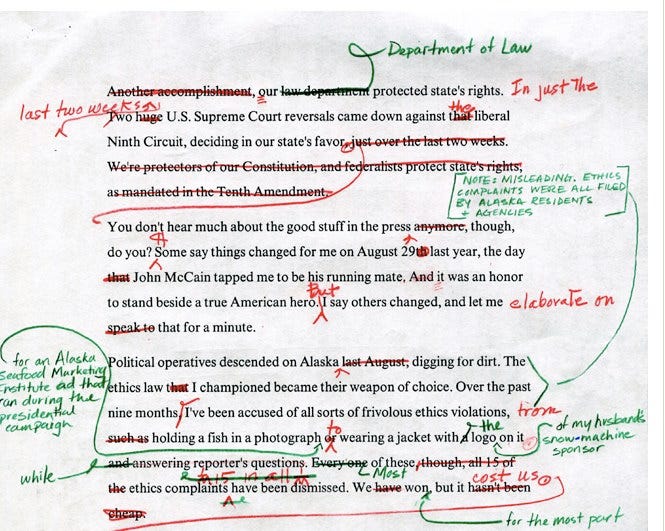 Department of Law
Another accomplishment, our law department protected state's rights. In just the
last two weeks
Two huge U.S. Supreme Court reversals came down against that the liberal
Ninth Circuit, deciding in our state's favor, just over the last two weeks.
We're protectors of our Constitution, and federalists protect state's rights,
as mandated in the Tenth Amendment.
NOTE: MISLEADING. ETHICS
COMPLAINTS WERE ALL FILED
BY ALASKA RESIDENTS
+ AGENCIES
You don't hear much about the good stuff in the press anymore, though,
do you? Some say things changed for me on August 29th last year, the day
that John McCain tapped me to be his running mate. And it was an honor
But
to stand beside a true American hero. I say others changed, and let me elaborate on
speak to that for a minute.
for an Alaska
Seafood Marketing
Institute ad that
ran during the
presidential
campaign
Political operatives descended on Alaska last August, digging for dirt. The
ethics law that I championed became their weapon of choice. Over the past
nine months, I've been accused of all sorts of frivolous ethics violations, from
such as holding a fish in a photograph to or wearing a jacket with a the logo on it
of my husband's
snow-machine
sponsor
while
and answering reporter's questions. Every one Most of these, though, all 15 of
15 in all
cost us
the ethics complaints have been dismissed. We have won, but it hasn't been
cheap.
for the most part